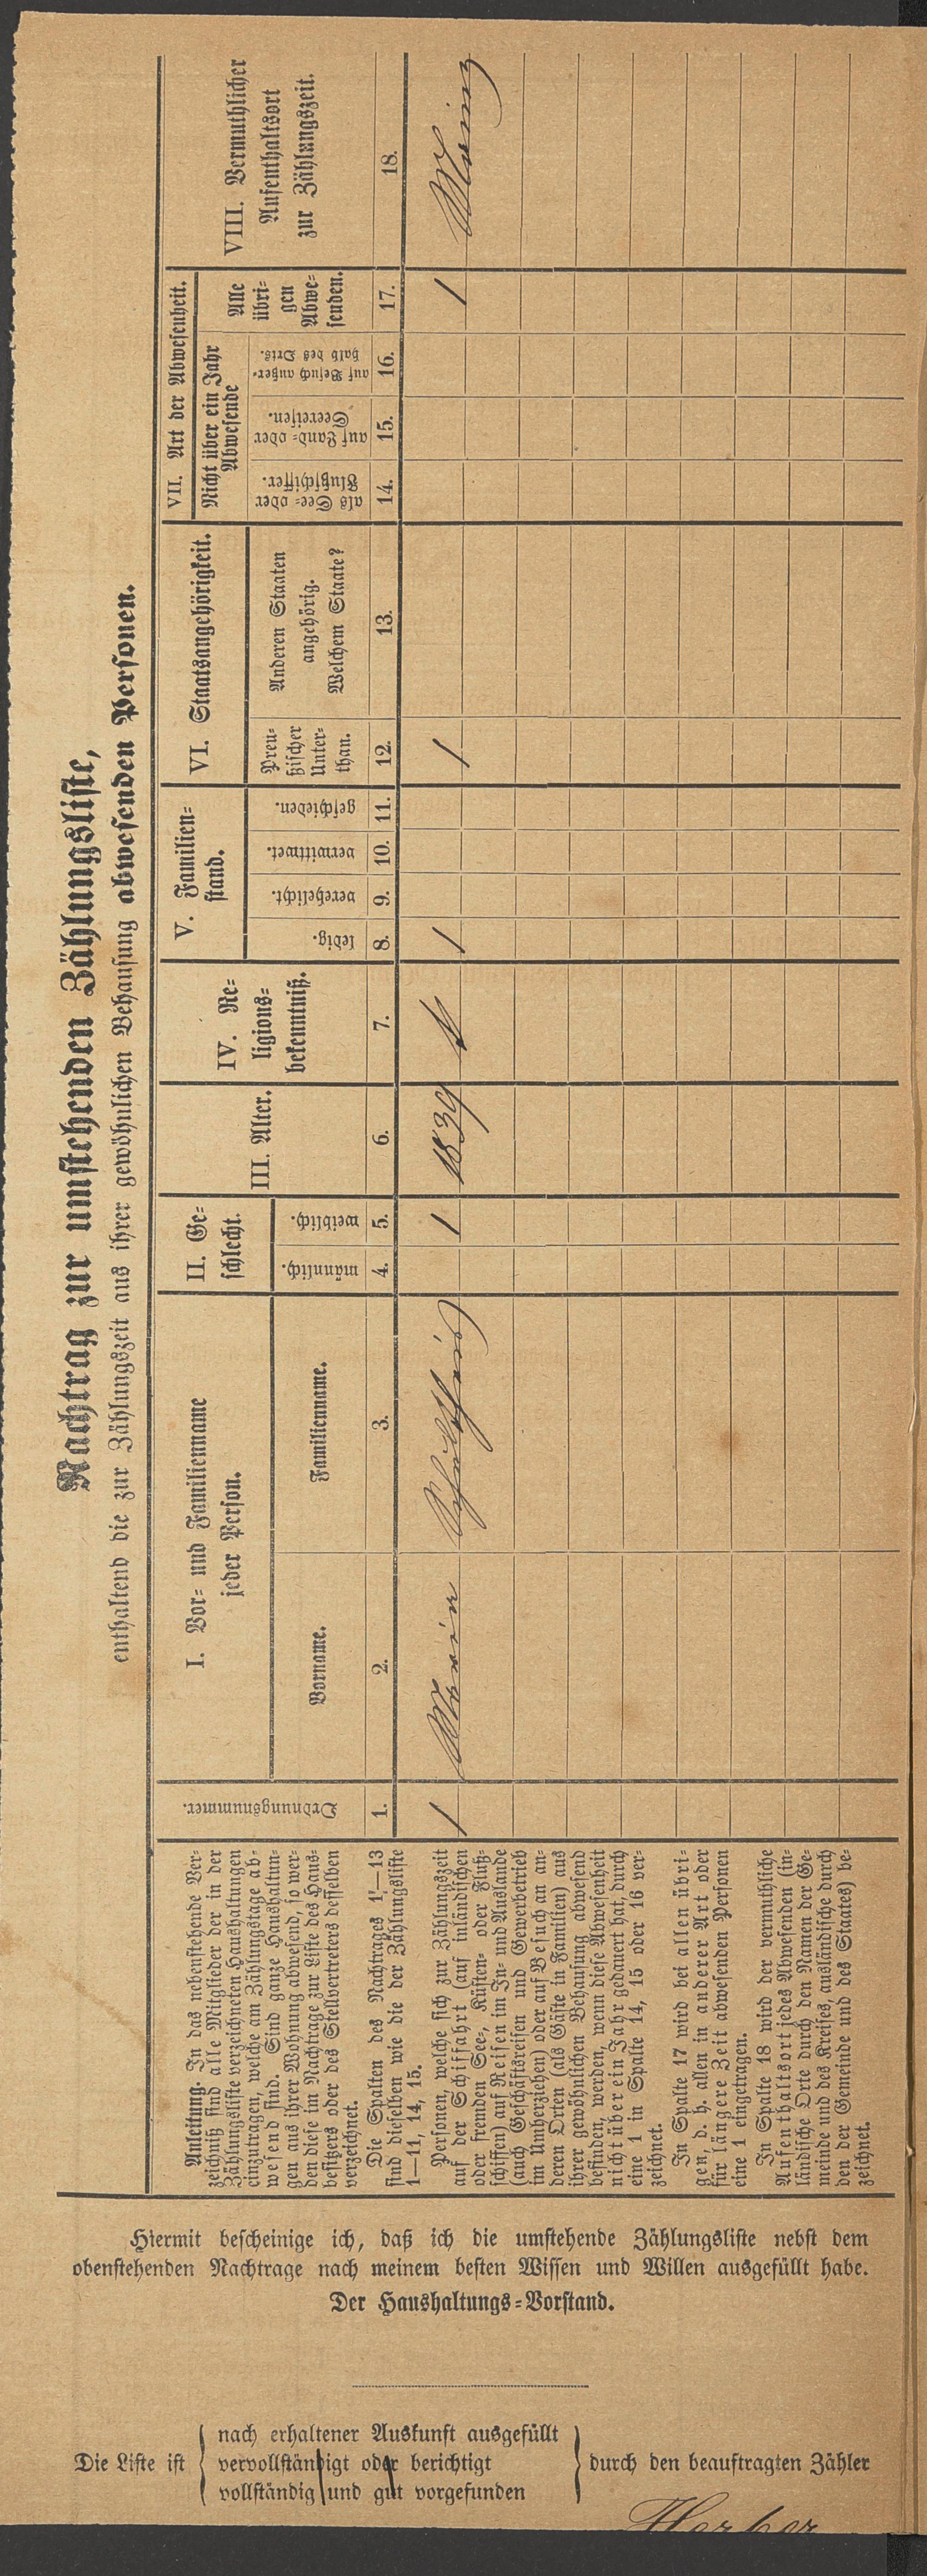 Nachtrag zur umstehenden Zählungsliste,
enthaltend die zur Zählungszeit aus ihrer gewöhnlichen Behausung abwesenden Personen.
Anleitung. In das nebenstehende Ver-
zeichniß sind alle Mitglieder der in der
Zählungsliste verzeichneten Haushaltungen
einzutragen, welche am Zählungstage ab-
wesend sind. Sind ganze Haushaltun-
gen aus ihrer Wohnung abwesend, so wer-
den diese im Nachtrage zur Liste des Haus-
besitzers oder des Stellvertreters desselben
verzeichnet.
Die Spalten des Nachtrages 1—13
sind dieselben wie die der Zählungsliste
1—11, 14, 15.
Personen, welche sich zur Zählungszeit
auf der Schiffahrt (auf inländischen
oder fremden See-, Küsten- oder Fluß-
schiffen) auf Reisen im In- und Auslande
(auch Geschäftsreisen und Gewerbetrieb
im Umherziehen) oder auf Besuch an an-
deren Orten (als Gäste in Familien) aus
ihrer gewöhnlichen Behausung abwesend
befinden, werden, wenn diese Abwesenheit
nicht über ein Jahr gedauert hat, durch
eine 1 in Spalte 14, 15 oder 16 ver-
zeichnet.
In Spalte 17 wird bei allen übri-
gen, d. h. allen in anderer Art oder
für längere Zeit abwesenden Personen
eine 1 eingetragen.
In Spalte 18 wird der vermuthliche
Aufenthaltsort jedes Abwesenden (in-
ländische Orte durch den Namen der Ge-
meinde und des Kreises, ausländische durch
den der Gemeinde und des Staates) be-
zeichnet.
Ordnungsnummer.
I. Vor- und Familienname
jeder Person.
Vorname.
Familienname.
II. Ge-
schlecht.
männlich.
weiblich.
III. Alter.
IV. Re-
ligions-
bekenntniß.
V. Familien-
stand.
ledig.
verehelicht.
verwittwet.
geschieden.
VI. Staatsangehörigkeit.
Preu-
ßischer
Unter-
than.
Anderen Staaten
angehörig.
Welchem Staate?
VII. Art der Abwesenheit.
Nicht über ein Jahr
Abwesende
als See- oder
Flußschiffer.
auf Land- oder
Seereisen.
auf Besuch außer-
halb des Orts.
Alle
übri-
gen
Abwe-
senden.
VIII. Vermuthlicher
Aufenthaltsort
zur Zählungszeit.
1. 2. 3. 4. 5. 6. 7. 8. 9. 10. 11. 12. 13. 14. 15. 16. 17. 18.
1 1 1839 1 1 1 Mainz
Hiermit bescheinige ich, daß ich die umstehende Zählungsliste nebst dem
obenstehenden Nachtrage nach meinem besten Wissen und Willen ausgefüllt habe.
Der Haushaltungs-Vorstand.
nach erhaltener Auskunft ausgefüllt
Die Liste ist vervollständigt oder berichtigt durch den beauftragten Zähler
vollständig und gut vorgefunden
Herber